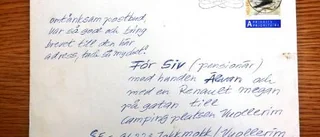 omtänksam postbud,
var så god och bring
brevet till den här
adress, tack så mycket!
A PRIORITY
För Siv (pensionär)
med handen Älvan och
med en Renault megan
på gatan till
campingplatsen Vuollerim
SE- Jokkmokk/Vuollerim